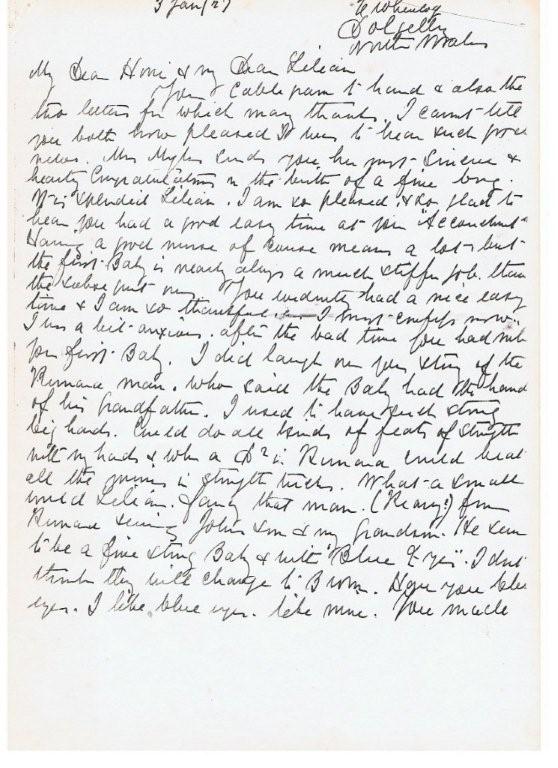 3 Jan / 27
Dolgelly
North Wales
My Dear Honi & my Dear Lilian
Your Cablegram to hand & also the
two letters for which many thanks. I cannot tell
you both how pleased I was to hear such good
news. Mrs sends you her most Sincere &
hearty Congratulations on the birth of a fine boy.
splendid Lilian. I am so pleased & so glad to
hear you had a good easy time at your "Accouchment"
Having a good nurse of course means a lot - but
the first Baby is nearly always a much stiffer job than
the subsequent ones. You evidently had a nice easy
time & I am so thankful. I must confess now
I was a bit anxious. after the bad time you had with
your first Baby. I did laugh over your story of the
Rumana man. who said the Baby had the hands
of his Grandfather. I used to have such strong
big hands. Could do all kinds of feats of strength
with my hands & when a in Rumana could beat
all the in strength tricks. What a small
world Lilian. Fancy that man. from
Rumana seeing John's son & my grandson. He seems
to be a fine strong Baby & with "Blue Eyes". I don't
think they will change to Brown. Have you blue
eyes. I like blue eyes. like mine. You made